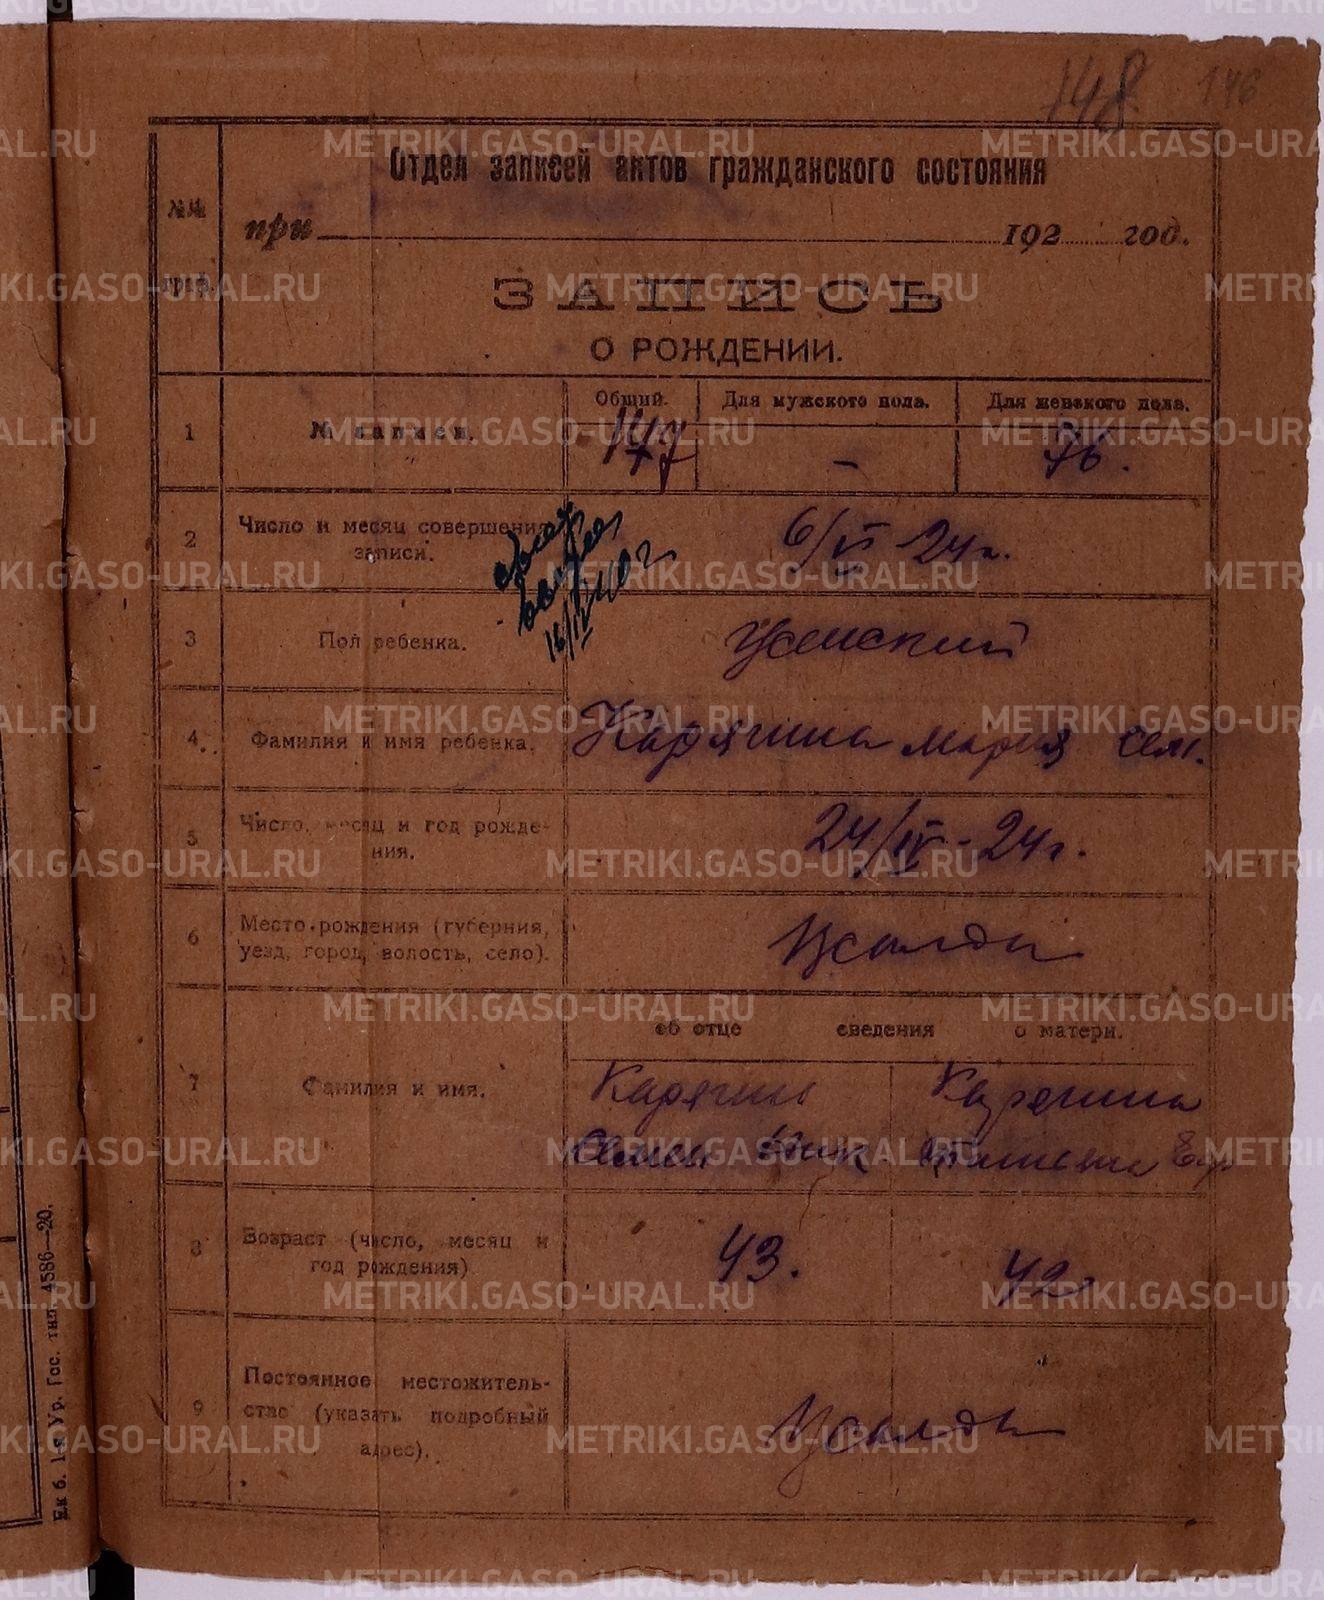 148 146
Отдел записей актов гражданского состояния
№№ граф.
при 192 год.
ЗАПИСЬ
О РОЖДЕНИИ.
Общий. Для мужского пола. Для женского пола.
1 № записи. 147 - 76.
2 Число и месяц совершения записи. 6/VI-24г.
16/IX 40г
3 Пол ребенка. Женский
4 Фамилия и имя ребенка. Карягина Мария Сем.
5 Число, месяц и год рождения. 24/IV-24г.
6 Место рождения (губерния, уезд, город, волость, село).
об отце сведения о матери.
7 Фамилия и имя. Карягин Карягина
Семен Ник.
8 Возраст (число, месяц и год рождения) 43. 42
9 Постоянное местожительство (указать подробный адрес).
Ек б. 1-я Ур. Гос. тип. 4586—20.
METRIKI.GASO-URAL.RU